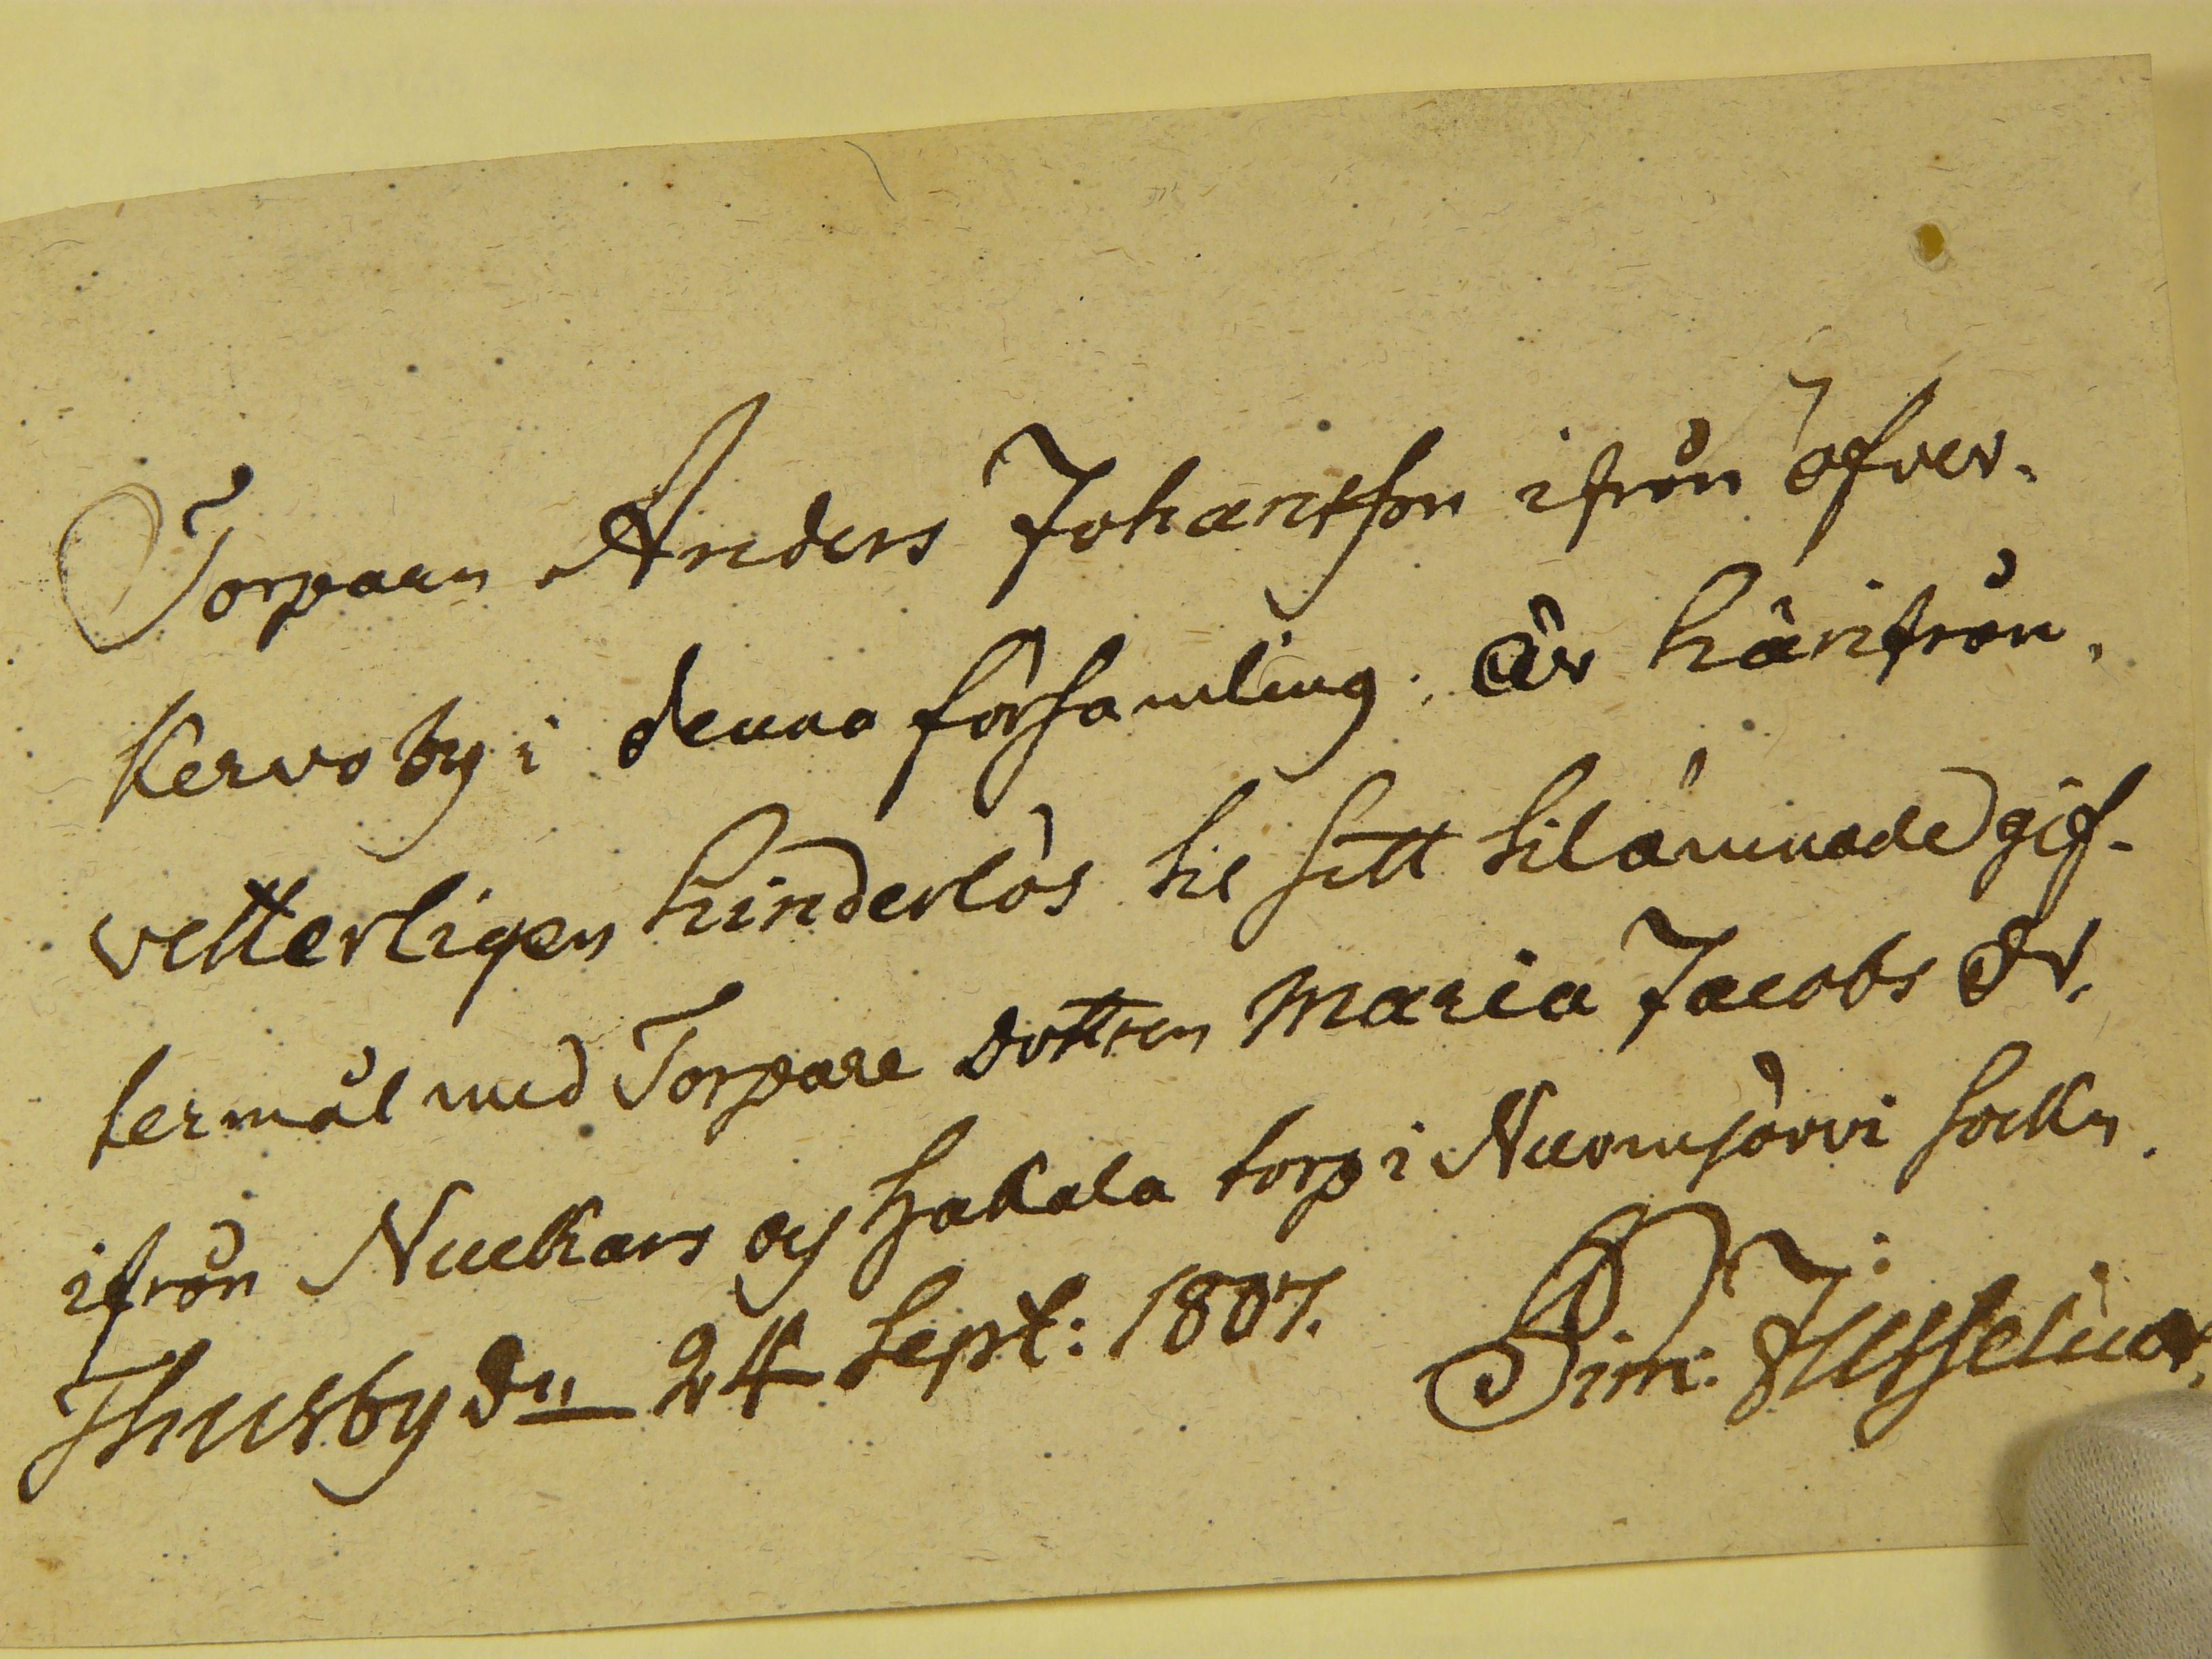 Torparn Anders Johansson ifrån Öfver-
kervo by i denna församling, är härifrån,
vetterligen hinderlös til sitt tilämnade gif-
termål med Torpare dottren Maria Jacobs dr.
ifrån Nuckars och Hakala torp i Nurmijärvi sockn.
Thusby dn 24 Sept: 1807. Sim: Jusselius.